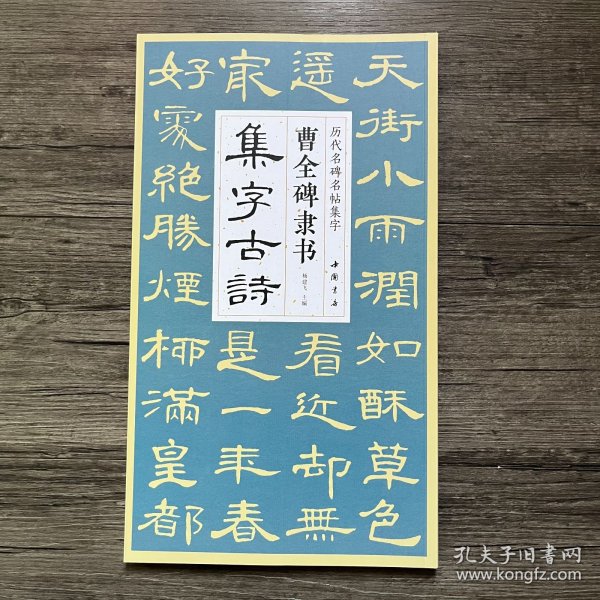 天街小雨潤如酥草色
遥看近却無
最是一年春
好處絶勝煙柳滿皇都
历代名碑名帖集字
曹全碑隶书
集字古詩
杨建飞 主编
中国書店
孔夫子旧書网
www.kongfz.com